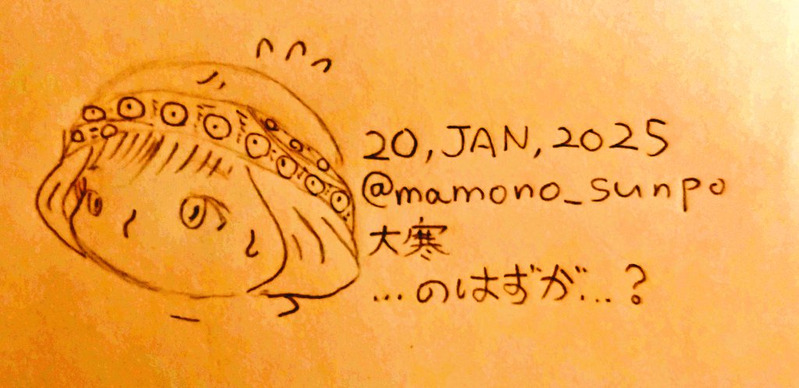 20,JAN,2025
@mamono_sunpo
大寒
...のはずが...?